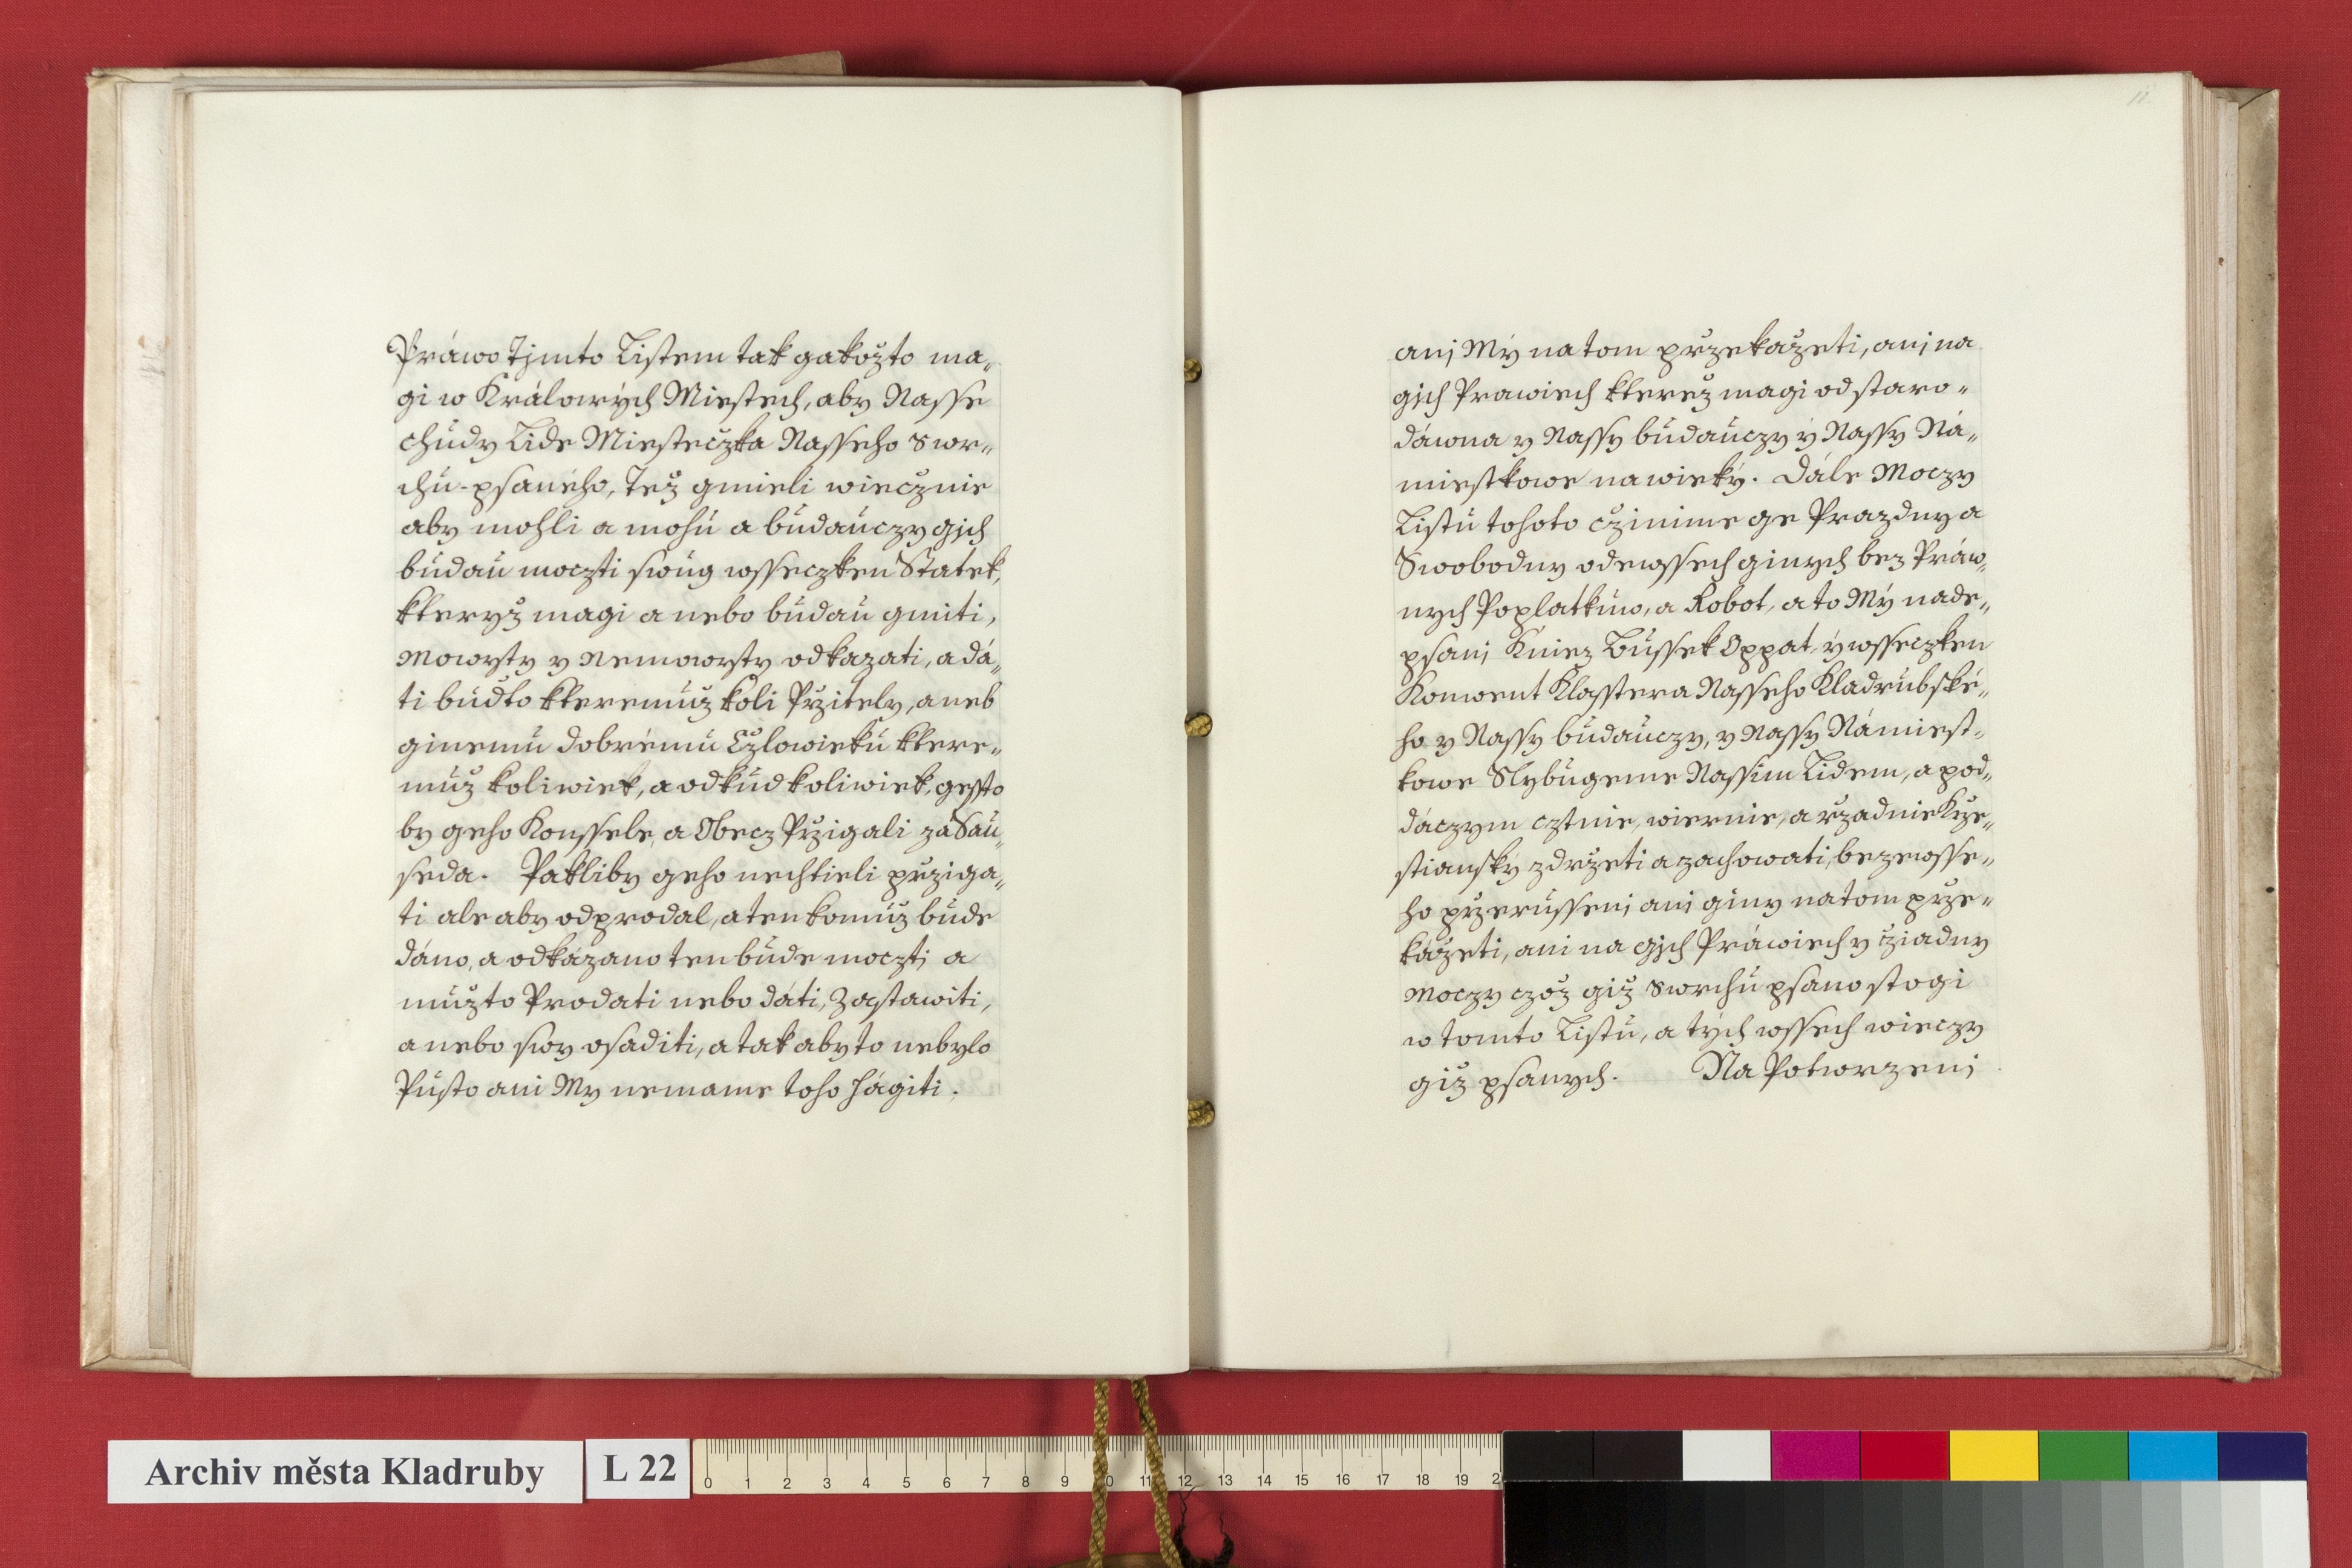 Práwo Tjmto Listem tak gakožto ma„
gi w Králowých Miestech, aby Nasse
chudy Lide Miesteczka Nasseho swr„
chu-psaného, Též gmieli wiecznie
aby mohli a mohú a budauczy gjch
budau moczti swug wsseczken Statek,
kteryž magi a nebo budau gmiti,
Mowyty y Nemowyty odkazati, a dá„
ti budto kteremuž koli Pržitely, aneb
ginemu dobrému Cžlowieku ktere„
muž koliwiek, a odkud koliwiek, gessto
by geho Konssele, a Obecz Pržigali za Sau„
seda. Pakliby geho nechtieli pržiga„
ti ale aby odprodal, a ten komuž bude
dáno, a odkázano ten bude moczti a
muž to Prodati nebo dáti, Zastawiti,
a nebo swy osaditi, a tak aby to nebylo
Pusto ani My nemame toho hágiti.
11
anj Mý na tom pržekažeti, anj na
gjch Prawiech kterež magi od staro„
dáwna y Nassy budauczy ý Nassy Ná„
miestkowe na wieký. Dále Moczy
Listu tohoto cžinime ge Prazdny a
Swobodny ode wssech ginych bez Práw„
nych Poplatkuw, a Robot, a to Mý nade„
psanj Kniez Bussek Oppat, ý wsseczken
Konwent Klasstera Nasseho Kladrubské„
ho y Nassy budauczy, y Nassy Námiest„
kowe Slybugeme Nassim Lidem, a pod„
dáczym cztnie, wiernie, a ržadnie Krže„
stiansky zdržeti a zachowati, beze wsse„
ho pržerussenj anj giny na tom prže„
kážeti, ani na gjch Práwiech y žiadny
Moczy czož giž swrchu psano stogi
w tomto Listu, a tých wssech wieczy
giž psanych. Na Potwrzenj
Archiv města Kladruby
L 22
0 1 2 3 4 5 6 7 8 9 10 11 12 13 14 15 16 17 18 19 2